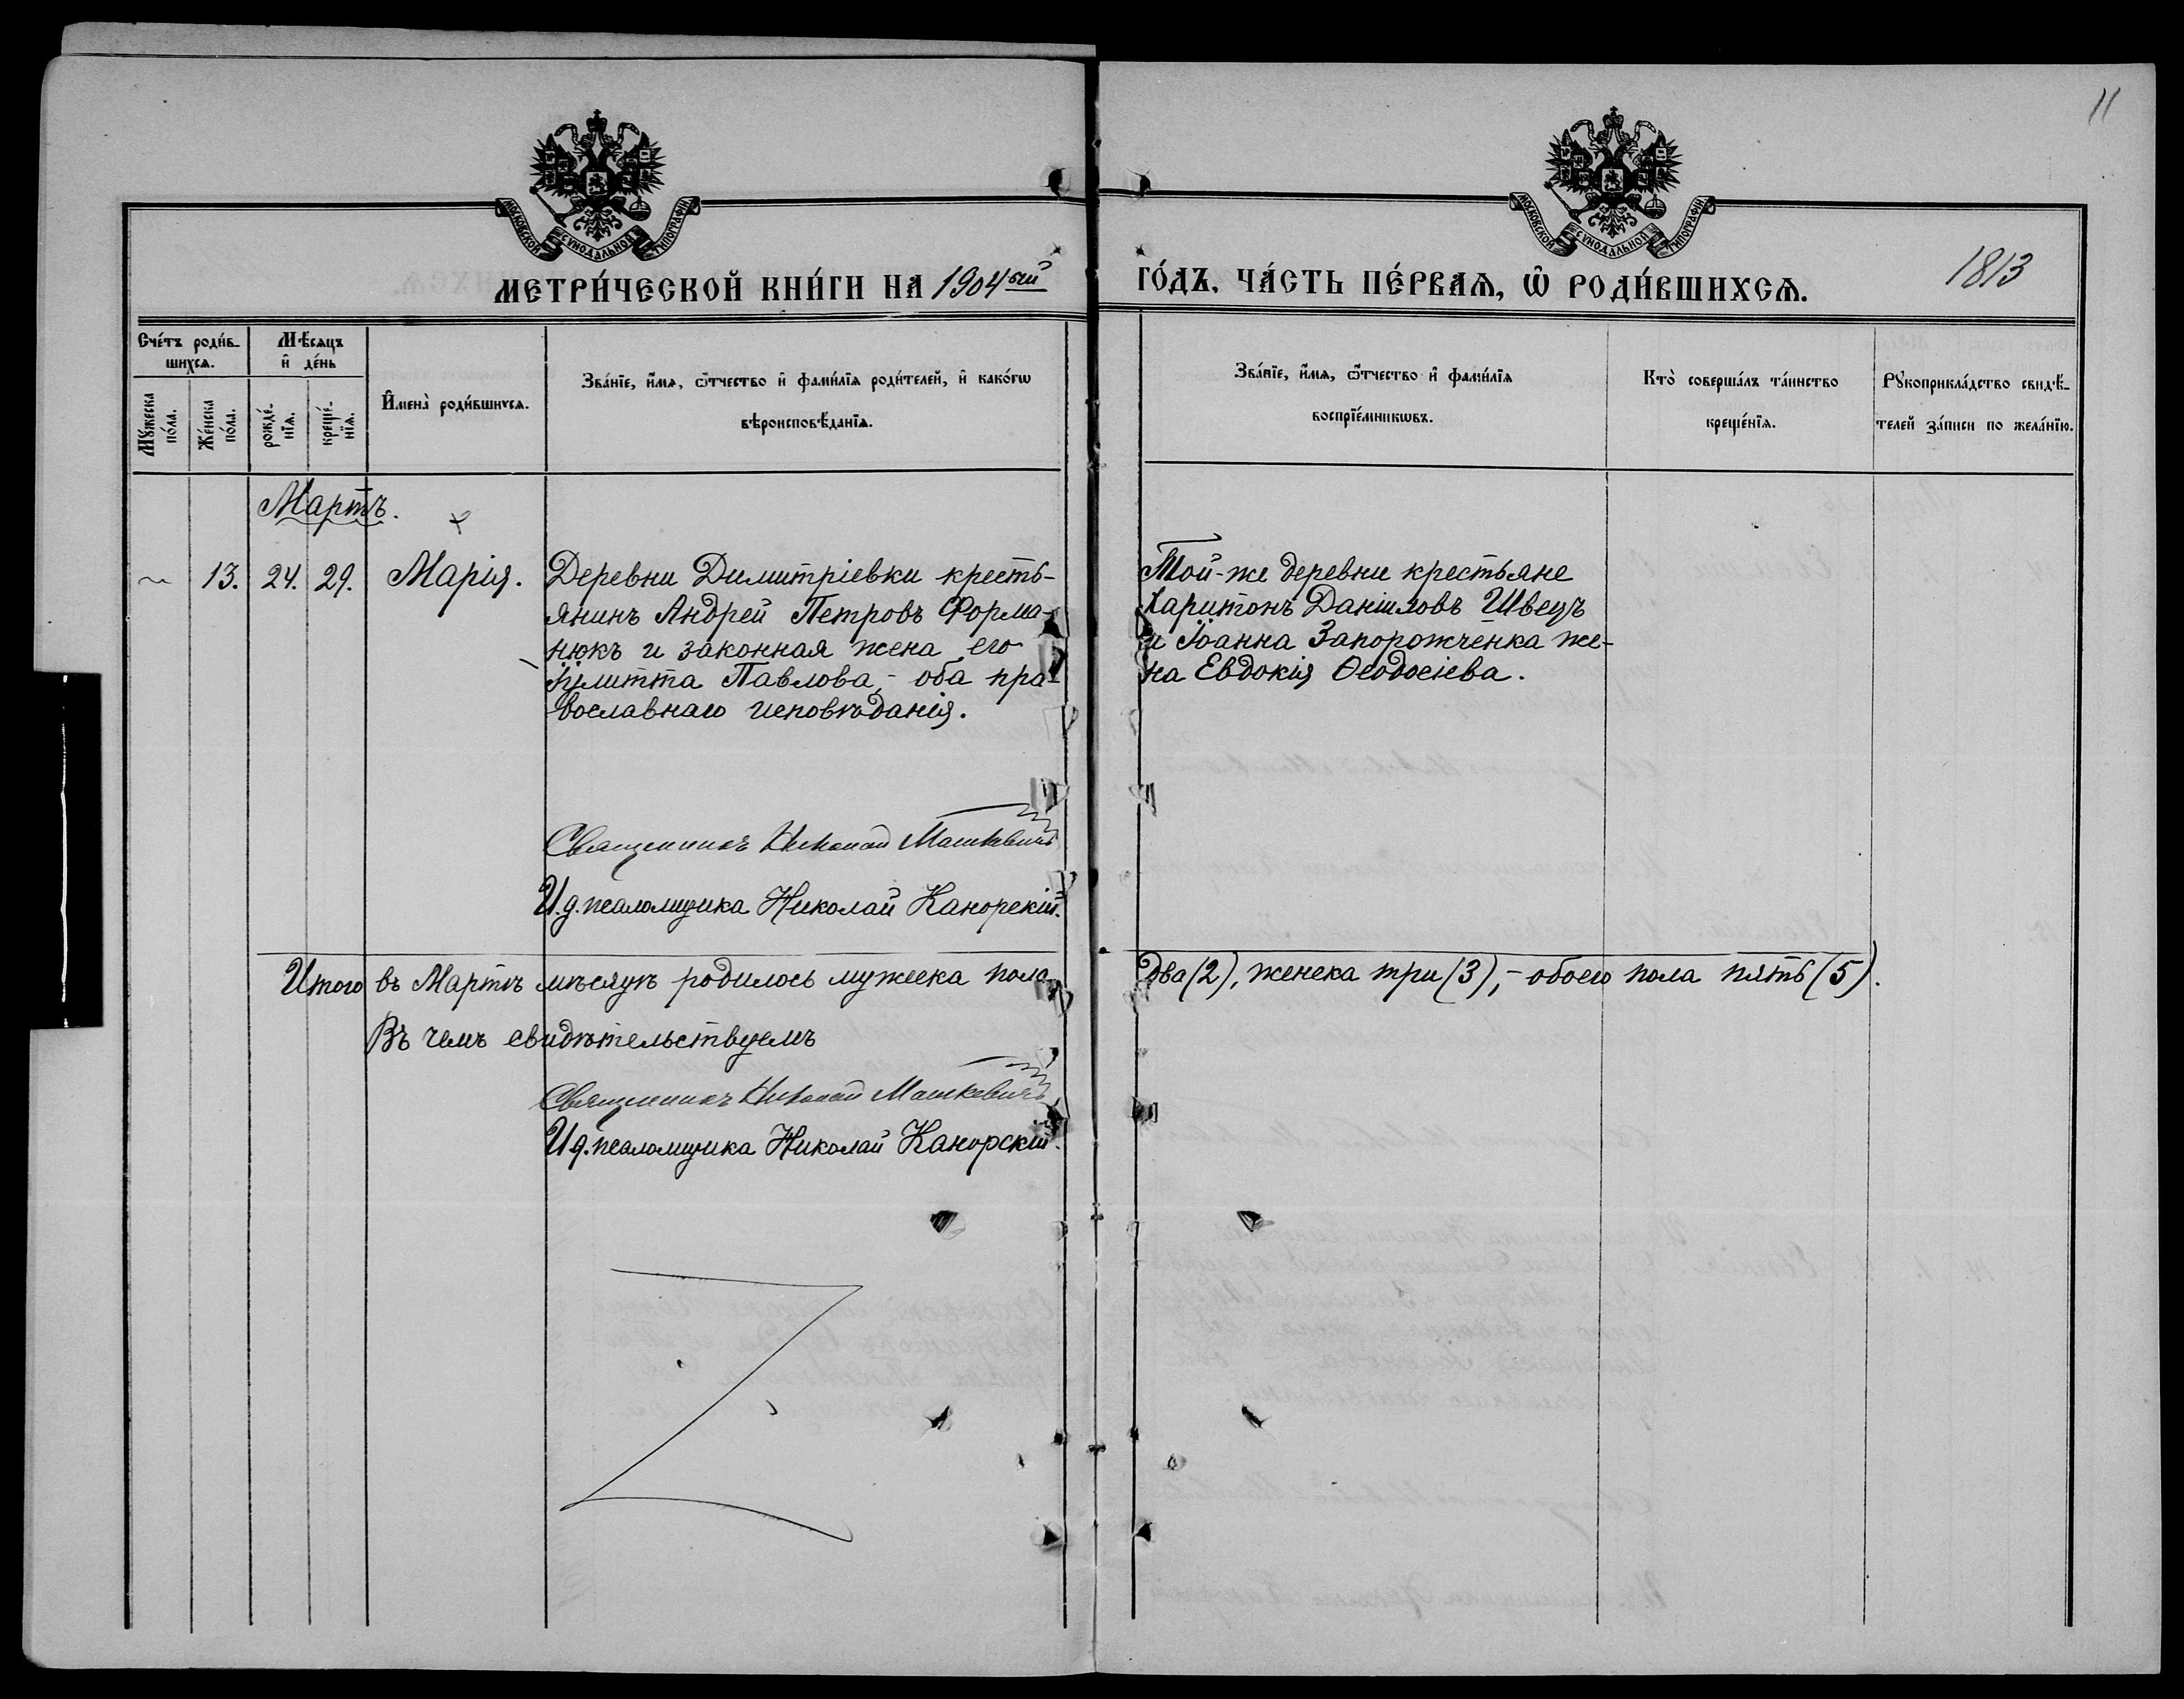 11
МОСКОВСКОЙ СѴНОДАЛЬНОЙ ТИПОГРАФІИ
МОСКОВСКОЙ СѴНОДАЛЬНОЙ ТИПОГРАФІИ
МЕТРИ́ЧЕСКОЙ КНИ́ГИ НА 1904ый ГО́ДЪ, ЧА́СТЬ ПЕ́РВАѦ, Ѿ РОДИ́ВШИХСѦ.
1813
Счéтъ роди́в-
шихсѧ.
Мꙋ́жеска
по́ла.
Же́нска
по́ла.
Мѣ́сѧцъ
и҆ де́нь
рожде́-
нїѧ.
креще́-
нїѧ.
И҆мена̀ роди́вшихсѧ.
Зва́нїе, и҆́мѧ, ѻ҆́тчество и҆ фами́лїѧ роди́телей, и҆ како́гѡ
вѣроисповѣ́данїѧ.
Зва́нїе, и҆́мѧ, ѻ҆́тчество и҆ фами́лїѧ
воспрїе́мникѡвъ.
Кто̀ соверша́лъ та́инство
креще́нїѧ.
Рꙋкоприкла́дство свидѣ́-
телей за́писи по жела́нїю.
Мартъ.
13. 24. 29. Марія.
Деревни Димитріевки кресть-
янинъ Андрей Петровъ Форма-
нюкъ и законная жена его
Іулитта Павлова, - оба пра-
вославнаго исповѣданія.
Той-же деревни крестьяне
Харитонъ Даніиловъ Швецъ
и Іоанна Запорожченка же-
на Евдокія Ѳеодосіева.
Священникъ Николай Машкевичъ
И.д. псаломщика Николай Канорскій.
Итого въ Мартѣ мѣсяцѣ родилось мужеска пола два (2), женска три (3), - обоего пола пять (5).
Въ чемъ свидѣтельствуемъ
Священникъ Николай Машкевичъ
И.д. псаломщика Николай Канорскій.